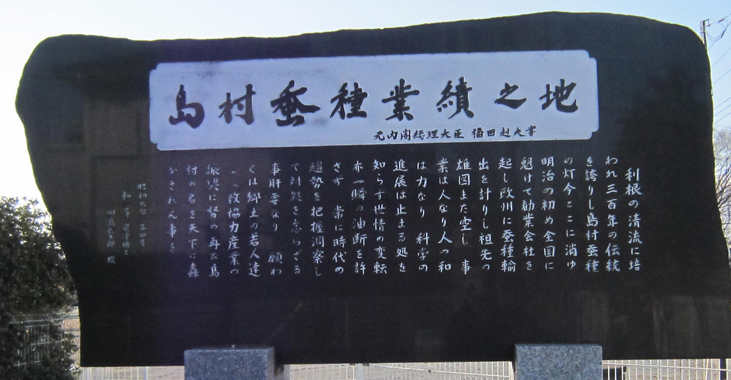 島村蚕種業績之地
元内閣総理大臣 福田赳夫書
利根の清流に培
われ三百年の伝統
を誇りし島村蚕種
の灯今ここに消ゆ
明治の初め全国に
魁けて勧業会社を
起し欧州に蚕種輸
出を計りし祖先の
雄図また空し 事
業は人なり人の和
は力なり 科学の
進展は止まる処を
知らず世情の変転
亦一瞬の油断を許
さず 常に時代の
趨勢を把握洞察し
て対処を忘らざる
事肝要なり 願わ
くは郷土の若人達
一致協力産業の
振興に努め再た島
村の名を天下に轟
かされん事を